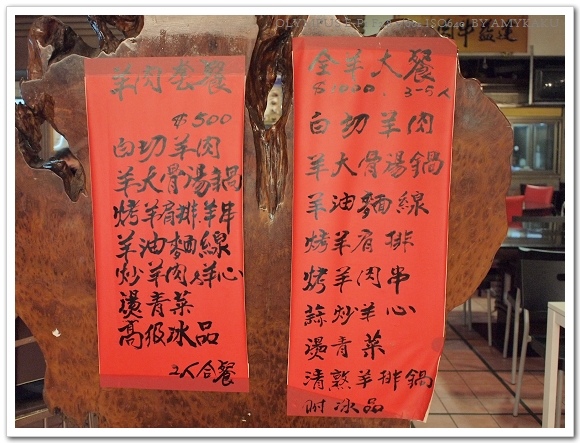 羊肉套餐
$500
白切羊肉
羊大骨湯鍋
烤羊肩排羊串
羊油麵線
炒羊肉羊心
燙青菜
高級冰品
2人合餐
全羊大餐
$1000. 3-5人
白切羊肉
羊大骨湯鍋
羊油麵線
烤羊肩排
烤羊肉串
蒜炒羊心
燙青菜
清熬羊排鍋
附冰品
BY AMYKAKU